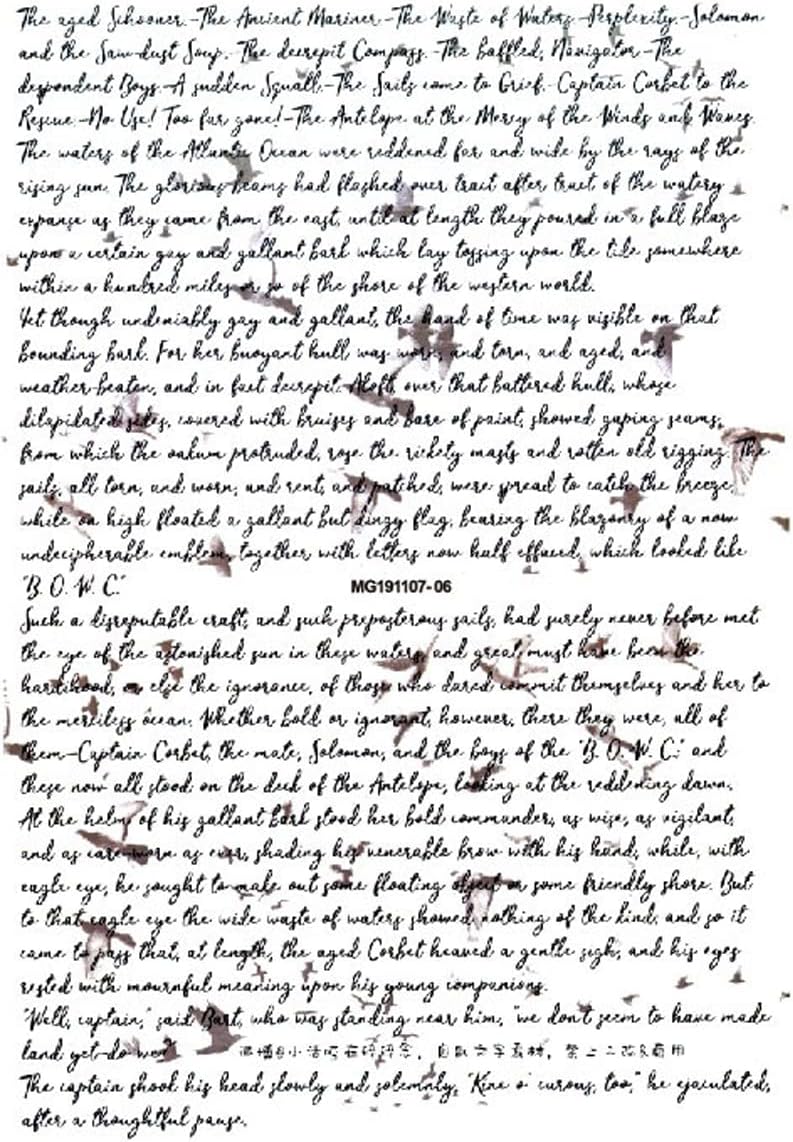 The aged Schooner.-The Ancient Mariner.-The Waste of Waters.-Perplexity.-Solomon
and the Saw-dust Soup.-The decrepit Compass.-The baffled, Navigator.-The
despondent Boys.-A sudden Squall.-The Sails come to Grief.-Captain Corbet to the
Rescue.-No Use! Too far gone!-The Antelope at the Mercy of the Winds and Waves.
The waters of the Atlantic Ocean were reddened far and wide by the rays of the
rising sun. The glorious beams had flashed over tract after tract of the watery
expanse as they came from the east, until at length they poured in a full blaze
upon a certain gay and gallant bark which lay tossing upon the tide somewhere
within a hundred miles or so of the shore of the western world.
Yet though undeniably gay and gallant, the hand of time was visible on that
bounding bark. For her buoyant hull was worn, and torn, and aged, and
weather-beaten, and in fact decrepit. Aloft, over that battered hull, whose
dilapidated sides, covered with bruises and bare of paint, showed gaping seams,
from which the oakum protruded, rose the rickety masts and rotten old rigging. The
sails, all torn, and worn, and rent, and patched, were spread to catch the breeze,
while on high floated a gallant but dingy flag, bearing the blazonry of a now
undecipherable emblem, together with letters now half effaced, which looked like
"B. O. W. C."
MG191107-06
Such a disreputable craft, and such preposterous sails, had surely never before met
the eye of the astonished sun in these waters, and great must have been the
hardihood, or else the ignorance, of those who dared commit themselves and her to
the merciless ocean. Whether bold or ignorant, however, there they were, all of
them-Captain Corbet, the mate, Solomon, and the boys of the "B. O. W. C." and
these now all stood on the deck of the Antelope, looking at the reddening dawn.
At the helm of his gallant bark stood her bold commander, as wise, as vigilant,
and as care-worn as ever, shading his venerable brow with his hand, while, with
eagle eye, he sought to make out some floating object or some friendly shore. But
to that eagle eye the wide waste of waters showed nothing of the kind, and so it
came to pass that, at length, the aged Corbet heaved a gentle sigh, and his eyes
rested with mournful meaning upon his young companions.
"Well, captain," said Bart, who was standing near him, "we don't seem to have made
land yet-do we?"
The captain shook his head slowly and solemnly, "Kine o' curous, too," he ejaculated,
after a thoughtful pause.